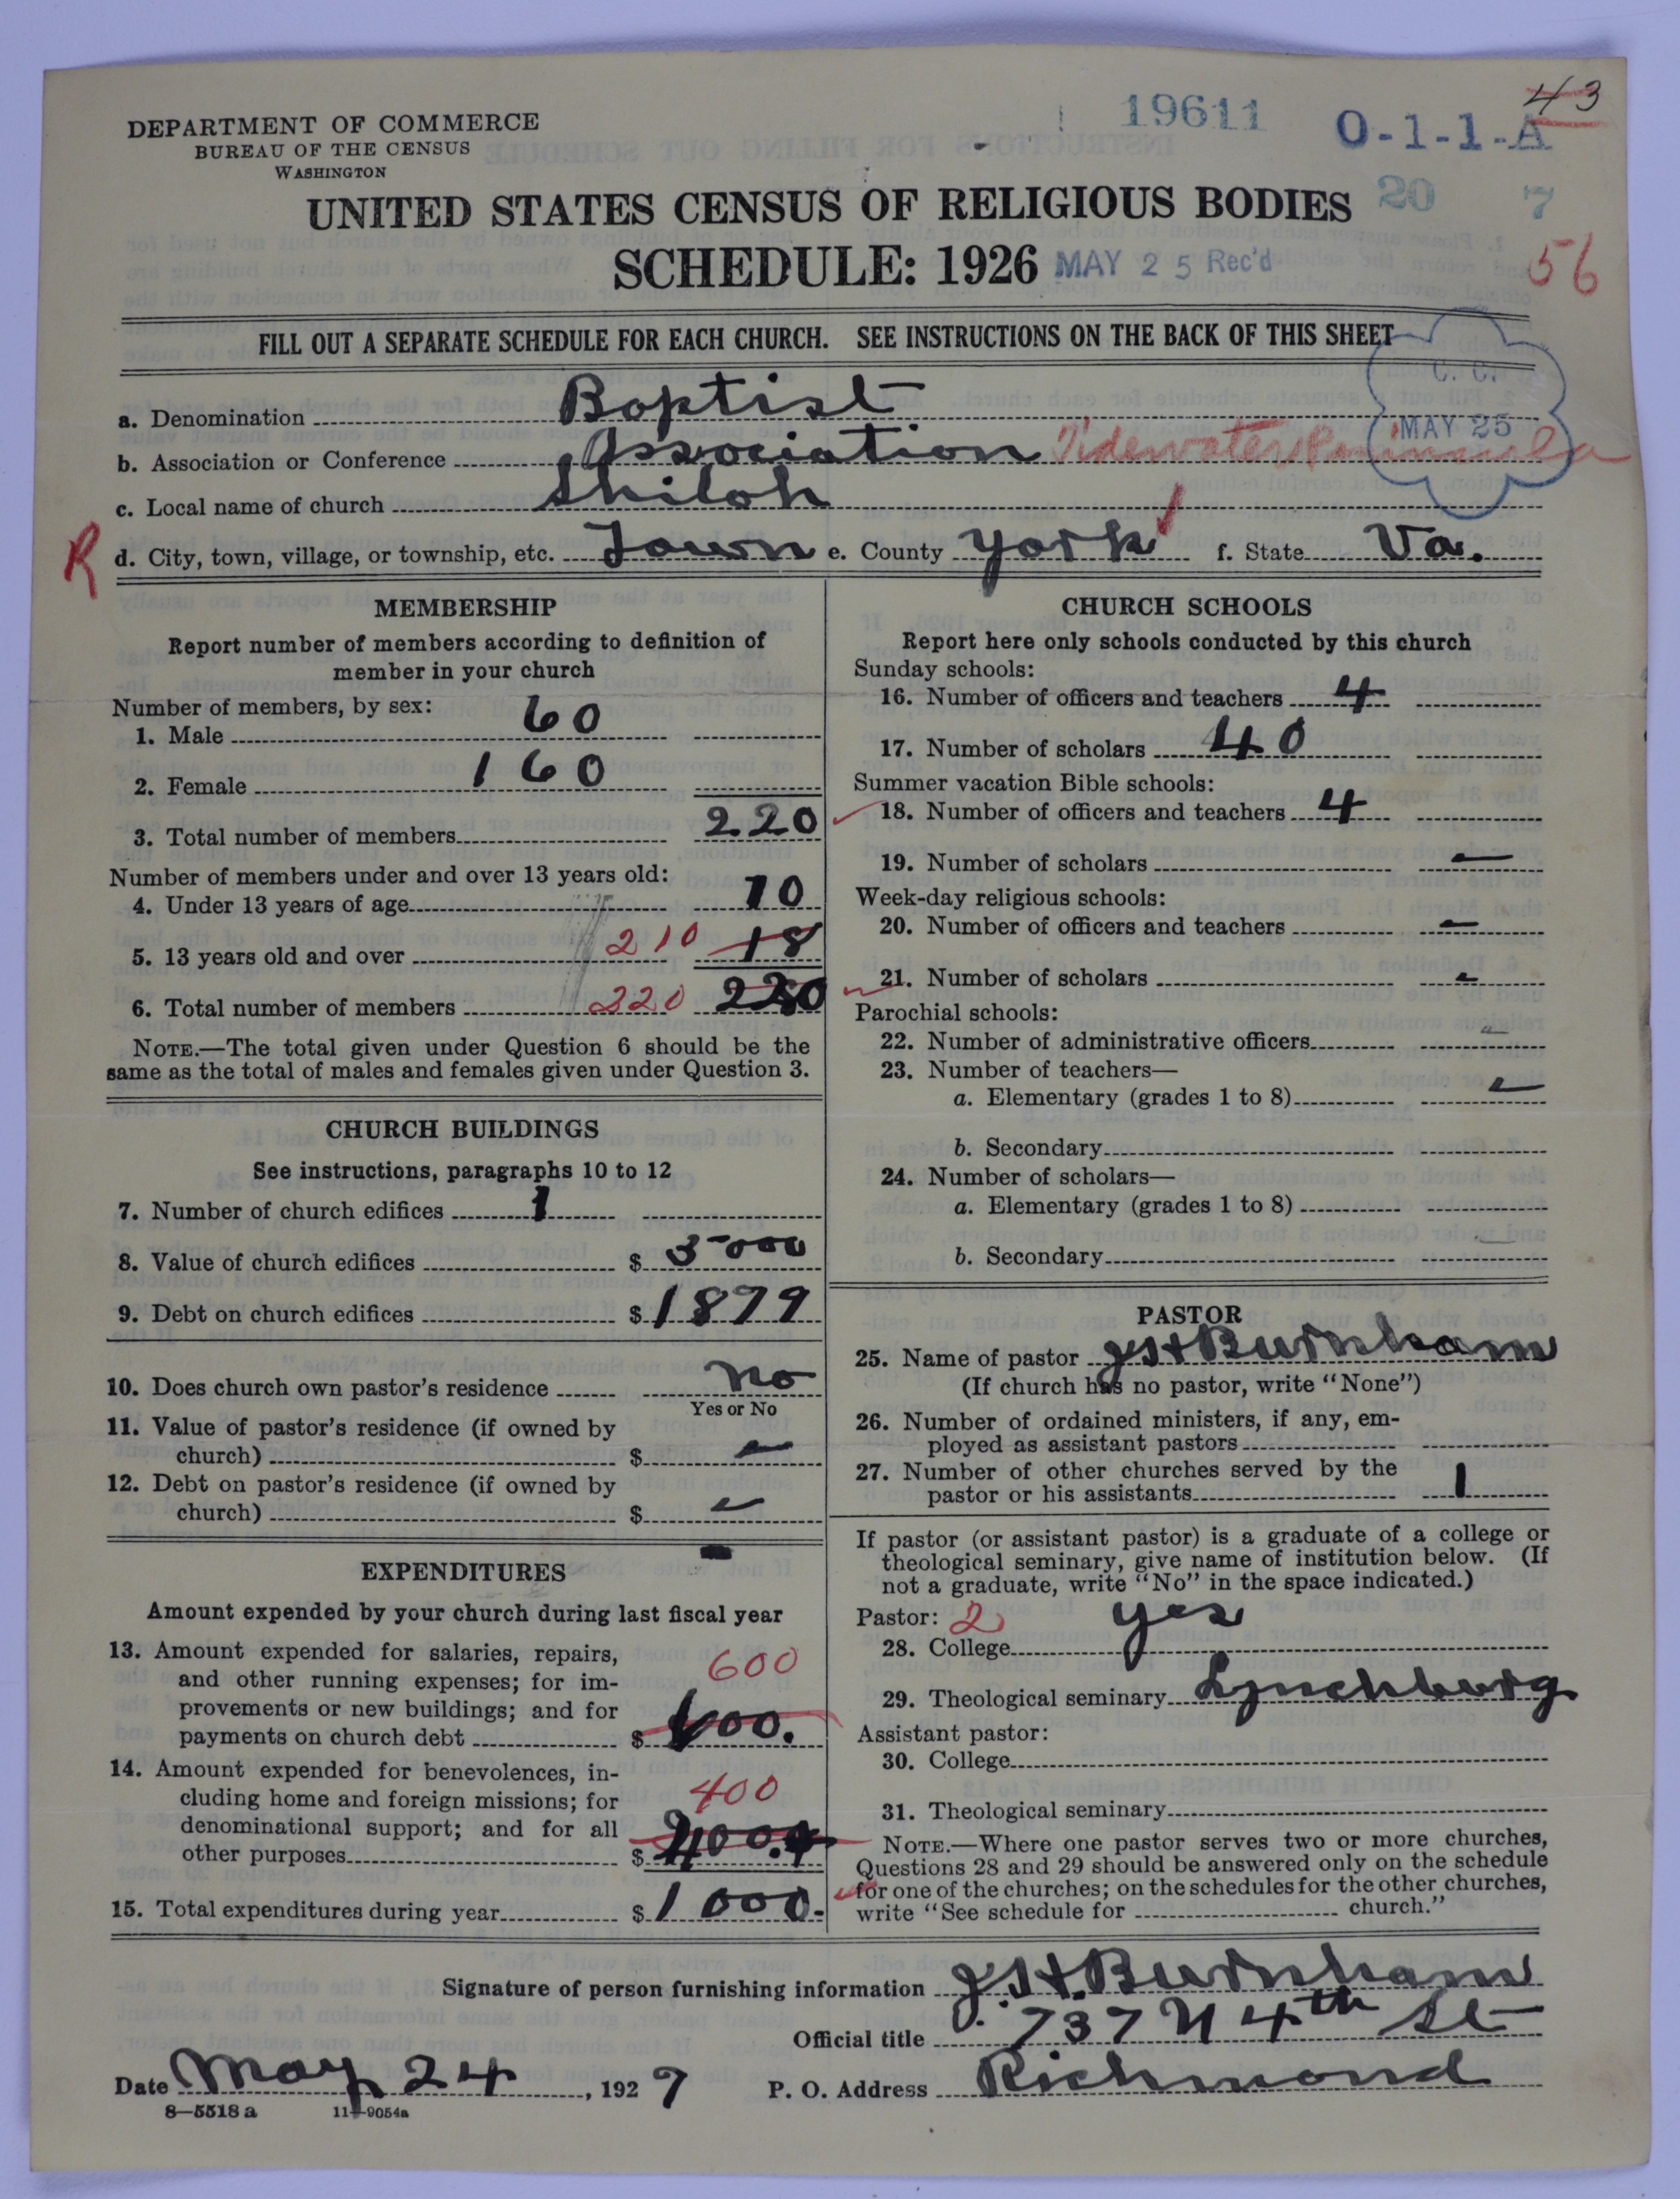 43
19611
O-1-1-A
DEPARTMENT OF COMMERCE
BUREAU OF THE CENSUS
WASHINGTON
UNITED STATES CENSUS OF RELIGIOUS BODIES 20 7
SCHEDULE: 1926 MAY 25 Rec'd 56
FILL OUT A SEPARATE SCHEDULE FOR EACH CHURCH. SEE INSTRUCTIONS ON THE BACK OF THIS SHEET
C. C.
MAY 25
a. Denomination Baptist
b. Association or Conference Association Tidewater Peninsula
c. Local name of church Shiloh
R d. City, town, village, or township, etc. Town e. County York f. State Va.
MEMBERSHIP
Report number of members according to definition of
member in your church
Number of members, by sex:
1. Male 60
2. Female 160
3. Total number of members 220
Number of members under and over 13 years old:
4. Under 13 years of age 10
5. 13 years old and over 210 18
6. Total number of members 220
NOTE.—The total given under Question 6 should be the
same as the total of males and females given under Question 3.
CHURCH BUILDINGS
See instructions, paragraphs 10 to 12
7. Number of church edifices 1
8. Value of church edifices $ 5000
9. Debt on church edifices $ 1899
10. Does church own pastor's residence No
Yes or No
11. Value of pastor's residence (if owned by
church) $ —
12. Debt on pastor's residence (if owned by
church) $ —
EXPENDITURES
Amount expended by your church during last fiscal year
13. Amount expended for salaries, repairs,
and other running expenses; for im-
provements or new buildings; and for
payments on church debt $ 600
14. Amount expended for benevolences, in-
cluding home and foreign missions; for
denominational support; and for all
other purposes $ 400
15. Total expenditures during year $ 1000.
CHURCH SCHOOLS
Report here only schools conducted by this church
Sunday schools:
16. Number of officers and teachers 4
17. Number of scholars 40
Summer vacation Bible schools:
18. Number of officers and teachers 4
19. Number of scholars —
Week-day religious schools:
20. Number of officers and teachers —
21. Number of scholars —
Parochial schools:
22. Number of administrative officers —
23. Number of teachers—
a. Elementary (grades 1 to 8) —
b. Secondary
24. Number of scholars—
a. Elementary (grades 1 to 8)
b. Secondary —
PASTOR
25. Name of pastor J S H Burnham
(If church has no pastor, write "None")
26. Number of ordained ministers, if any, em-
ployed as assistant pastors
27. Number of other churches served by the
pastor or his assistants 1
If pastor (or assistant pastor) is a graduate of a college or
theological seminary, give name of institution below. (If
not a graduate, write "No" in the space indicated.)
Pastor: 2
28. College yes
29. Theological seminary Lynchburg
Assistant pastor:
30. College
31. Theological seminary
NOTE.—Where one pastor serves two or more churches,
Questions 28 and 29 should be answered only on the schedule
for one of the churches; on the schedules for the other churches,
write "See schedule for church."
Signature of person furnishing information J. S. H. Burnham
Official title 737 N 4th St
Date May 24, 1927 P. O. Address Richmond
8—5518 a 11—9054a